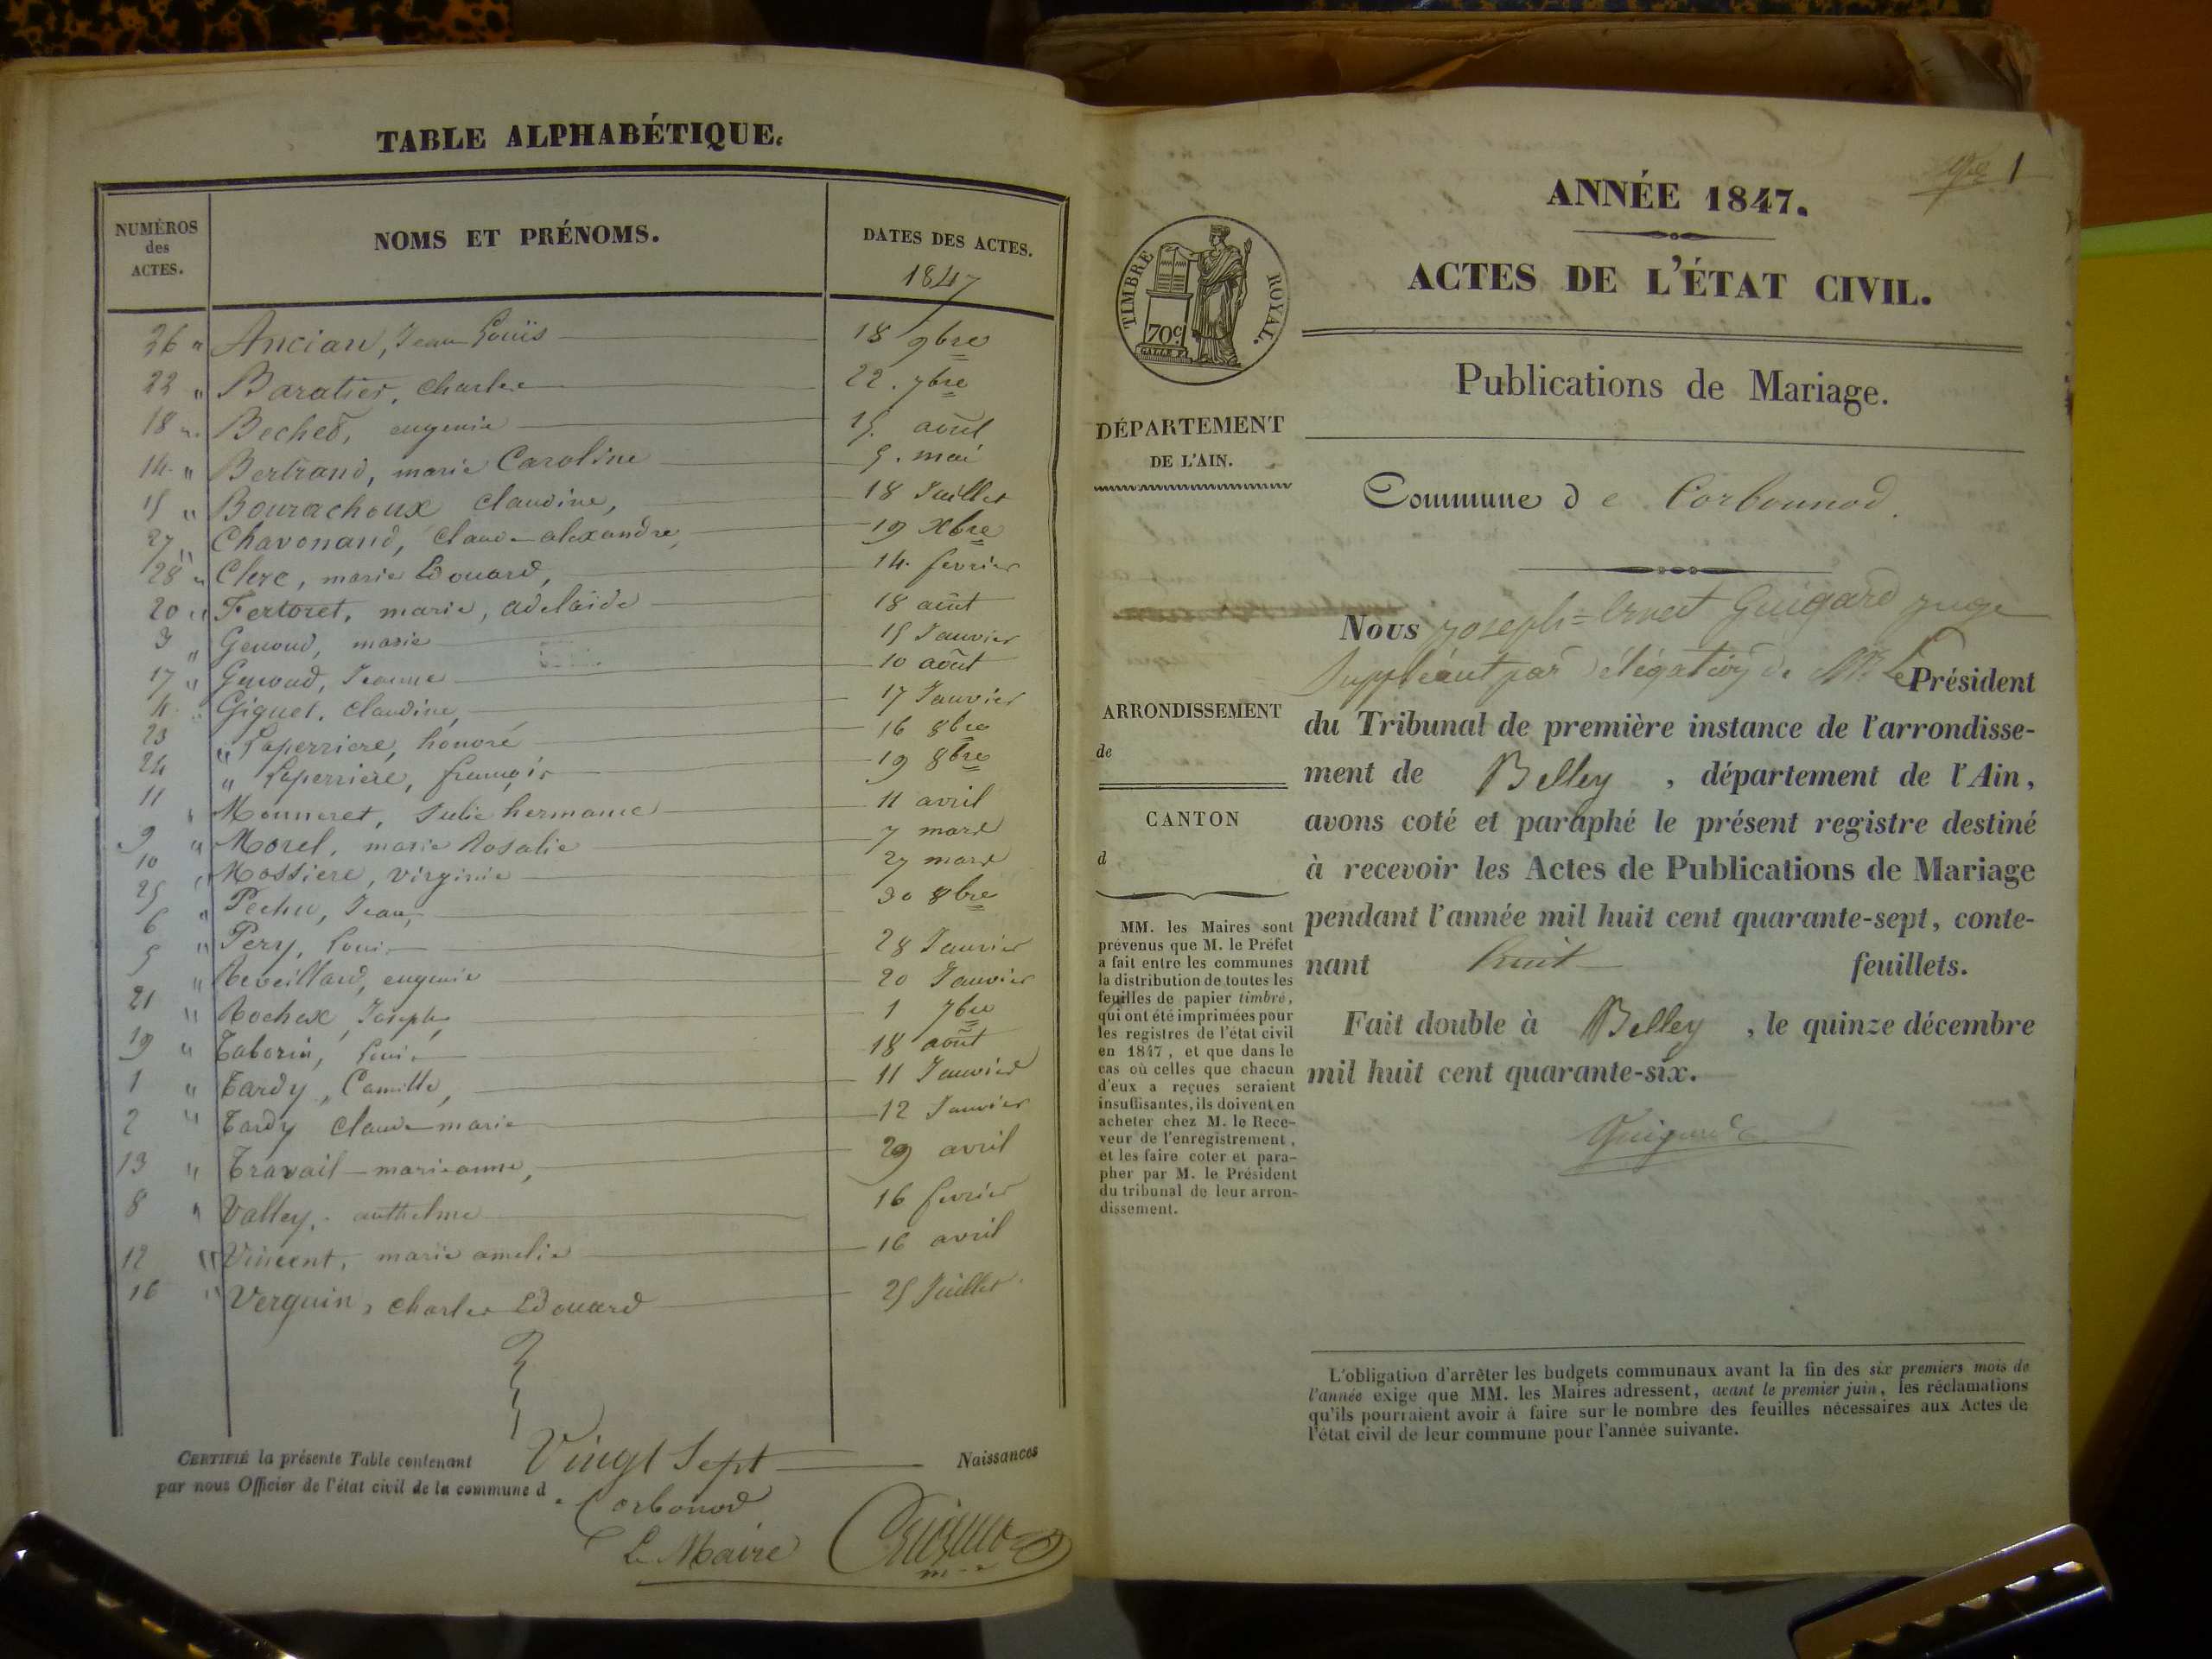 TABLE ALPHABÉTIQUE.
NUMÉROS
des
ACTES.
NOMS ET PRÉNOMS.
DATES DES ACTES.
1847
26 " Ancian, Jean Louis 18 9bre
22 " Baratier, Charles 22. 7bre
18 " Bechet, eugenie 15. août
14 " Bertrand, marie Caroline 5. mai
15 " Bourachoux Claudine, 18 Juillet
27 " Chavonand, Claude alexandre, 19 Xbre
28 " Clerc, marie Edouard, 14. fevrier
20 " Fertoret, marie, adelaide 18 août
3 " Genoud, marie 15 Janvier
17 " Genoud, Jeanne 10 août
4 Giguet, Claudine, 17 Janvier
23 " Laperriere, honoré 16 8bre
24 " Laperriere, françois 19 8bre
11 " Monneret, Julie hermance 11 avril
9 " Morel, marie Rosalie 7 mars
10 " Mossiere, virginie 27 mars
25 " Pechu, Jean, 30 8bre
6 " Pery, Louis 28 Janvier
5 " Reveillard, eugenie 20 Janvier
21 " Rochex, Joseph, 1 7bre
19 " Taborin, Louis 18 août
1 " Tardy, Camille, 11 Janvier
2 " Tardy Claude marie 12 Janvier
13 " Travail marianne, 29 avril
8 " Valley, anthelme 16 fevrier
12 " Vincent, marie amelie 16 avril
16 " Verguin, Charles Edouard 25 Juillet
CERTIFIÉ la présente Table contenant Vingt Sept Naissances
par nous Officier de l'état civil de la commune d e Corbonod
Le Maire
1
ANNÉE 1847.
ACTES DE L'ÉTAT CIVIL.
TIMBRE ROYAL.
70c
GALLE F.
Publications de Mariage.
DÉPARTEMENT
DE L'AIN.
Commune d e Corbonod.
Nous Joseph=Ernest Guigard juge
Suppléant par délégation de Mr. Le Président
du Tribunal de première instance de l'arrondisse-
ment de Belley, département de l'Ain,
avons coté et paraphé le présent registre destiné
à recevoir les Actes de Publications de Mariage
pendant l'année mil huit cent quarante-sept, conte-
nant huit feuillets.
Fait double à Belley, le quinze décembre
mil huit cent quarante-six.
Guigard
ARRONDISSEMENT
de
CANTON
d
MM. les Maires sont
prévenus que M. le Préfet
a fait entre les communes
la distribution de toutes les
feuilles de papier timbré,
qui ont été imprimées pour
les registres de l'état civil
en 1847, et que dans le
cas où celles que chacun
d'eux a reçues seraient
insuffisantes, ils doivent en
acheter chez M. le Rece-
veur de l'enregistrement,
et les faire coter et para-
pher par M. le Président
du tribunal de leur arron-
dissement.
L'obligation d'arrêter les budgets communaux avant la fin des six premiers mois de
l'année exige que MM. les Maires adressent, avant le premier juin, les réclamations
qu'ils pourraient avoir à faire sur le nombre des feuilles nécessaires aux Actes de
l'état civil de leur commune pour l'année suivante.